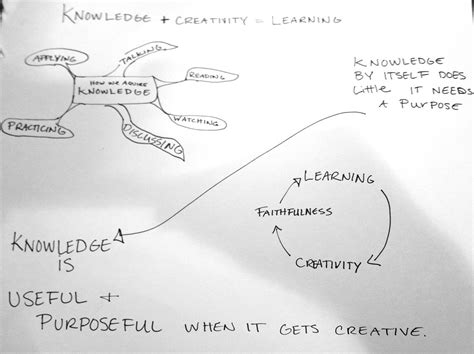 KNOWLEDGE + CREATIVITY = LEARNING
APPLYING
TALKING
READING
HOW WE AQUIRE
KNOWLEDGE
WATCHING
PRACTICING
DISCUSSING
KNOWLEDGE
BY ITSELF DOES
Little IT NEEDS
A PURPOSE
LEARNING
FAITHFULNESS
CREATIVITY
KNOWLEDGE
IS
USEFUL +
PURPOSEFUL WHEN IT GETS CREATIVE.